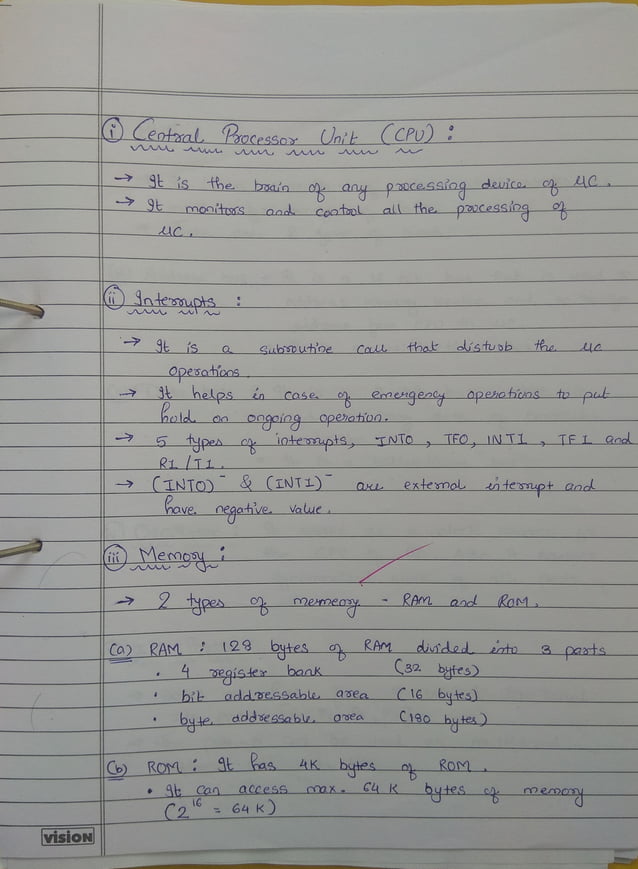 (i) Central Processor Unit (CPU) :
→ It is the brain of any processing device of μC.
→ It monitors and control all the processing of
μC.
(ii) Interrupts :
→ It is a subroutine call that disturb the μc
operations.
→ It helps in case of emergency operations to put
hold on ongoing operation.
→ 5 types of interrupts, INTO, TFO, INTI, TFI and
RI/TI.
→ (INTO)⁻ & (INTI)⁻ are external interrupt and
have negative value.
(iii) Memory :
→ 2 types of memeory - RAM and ROM.
(a) RAM : 128 bytes of RAM divided into 3 parts
• 4 register bank (32 bytes)
• bit addressable area (16 bytes)
• byte addressable area (180 bytes)
(b) ROM : It has 4K bytes of ROM.
• It can access max. 64 K bytes of memory
(2¹⁶ = 64 K)
VISION